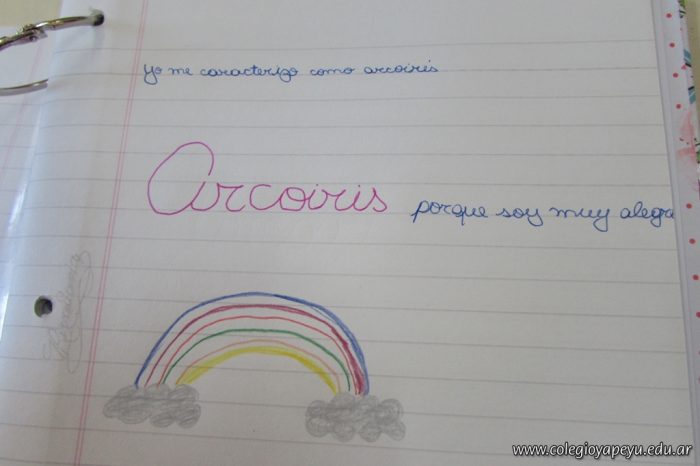 yo me caracterizo como arcoiris
Arcoiris porque soy muy alegre
www.colegioyapeyu.edu.ar